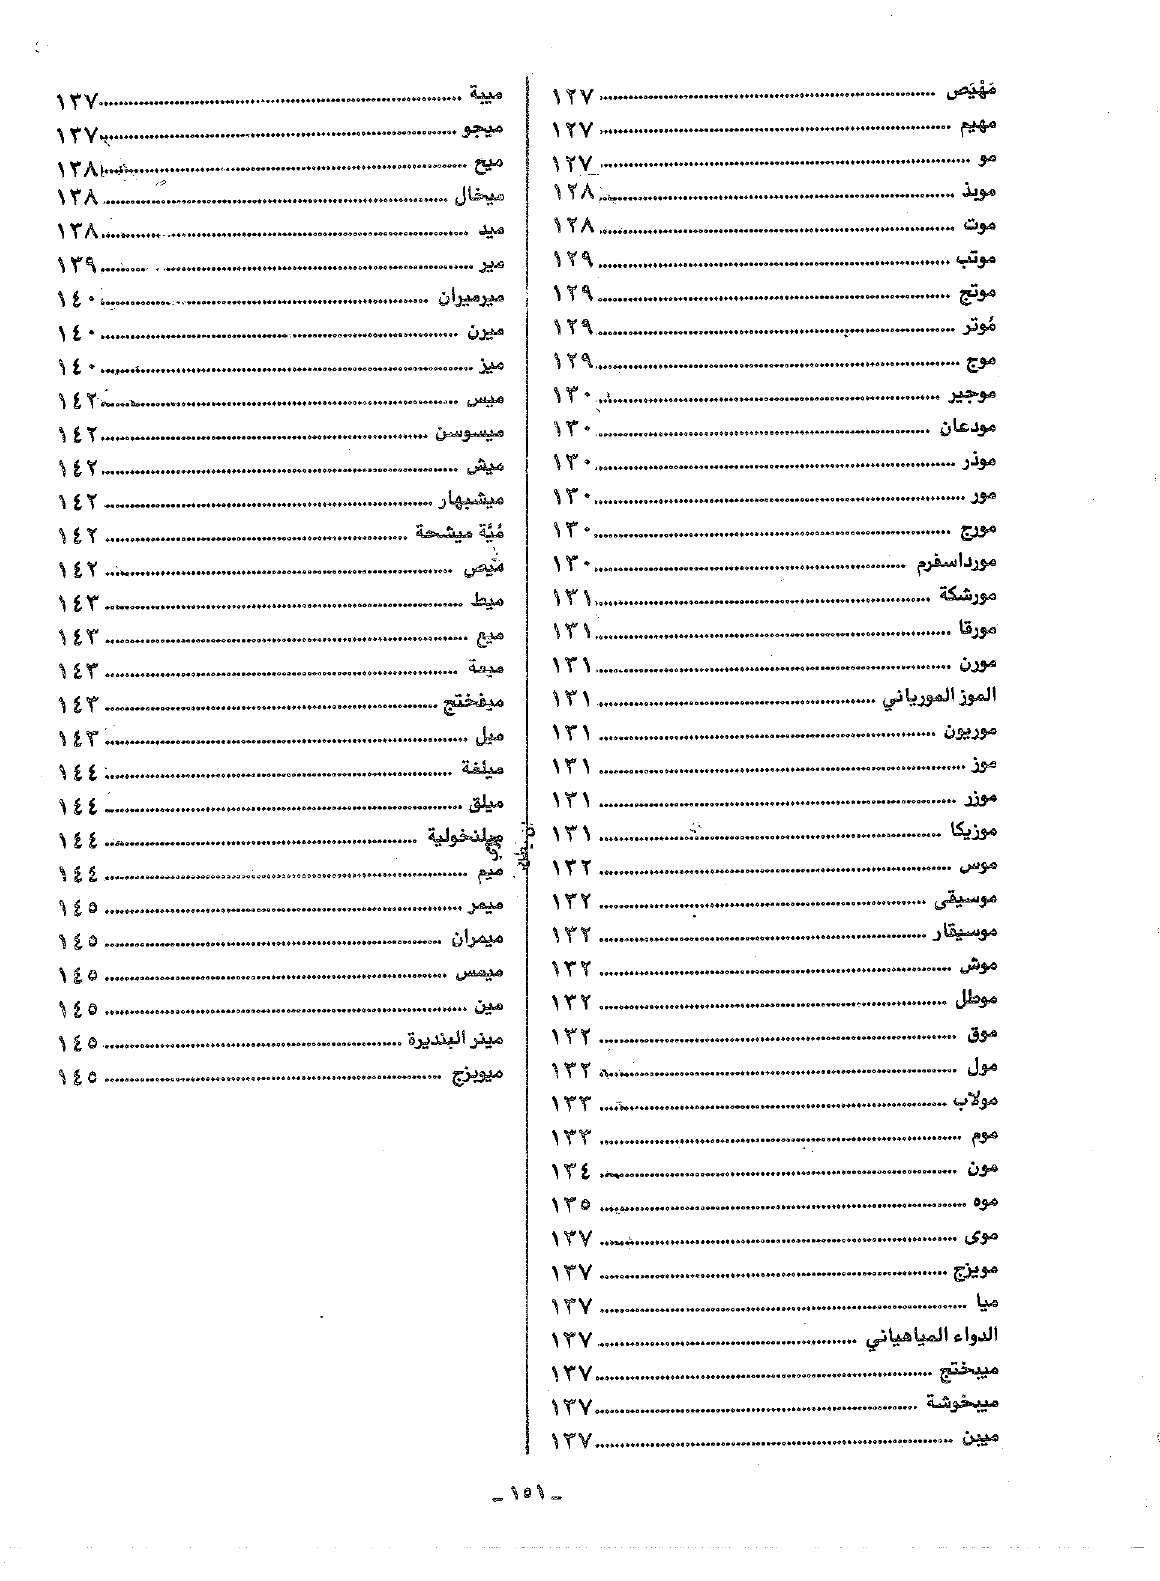 مَهْيَص ........ ١٢٧
مهيم ........ ١٢٧
مو ........ ١٢٧
موبذ ........ ١٢٨
موت ........ ١٢٨
موتب ........ ١٢٩
موتج ........ ١٢٩
مُوتر ........ ١٢٩
موج ........ ١٢٩
موجير ........ ١٣٠
مودعان ........ ١٣٠
موذر ........ ١٣٠
مور ........ ١٣٠
مورج ........ ١٣٠
مورداسفرم ........ ١٣٠
مورشكة ........ ١٣١
مورقا ........ ١٣١
مورن ........ ١٣١
الموز المورياني ........ ١٣١
موريون ........ ١٣١
موز ........ ١٣١
موزر ........ ١٣١
موزيكا ........ ١٣١
موس ........ ١٣٢
موسيقى ........ ١٣٢
موسيقار ........ ١٣٢
موش ........ ١٣٢
موطل ........ ١٣٢
موق ........ ١٣٢
مول ........ ١٣٢
مولاب ........ ١٣٣
موم ........ ١٣٣
مون ........ ١٣٤
موه ........ ١٣٥
موى ........ ١٣٧
مويزج ........ ١٣٧
ميا ........ ١٣٧
الدواء المياهياني ........ ١٣٧
ميبختج ........ ١٣٧
ميبخوشة ........ ١٣٧
ميبن ........ ١٣٧
ميبة ........ ١٣٧
ميجو ........ ١٣٧
ميح ........ ١٣٨
ميخال ........ ١٣٨
ميد ........ ١٣٨
مير ........ ١٣٩
ميرميران ........ ١٤٠
ميرن ........ ١٤٠
ميز ........ ١٤٠
ميس ........ ١٤٢
ميسوسن ........ ١٤٢
ميش ........ ١٤٢
ميشبهار ........ ١٤٢
مُيَّة ميشحة ........ ١٤٢
ميص ........ ١٤٢
ميط ........ ١٤٣
ميع ........ ١٤٣
ميعة ........ ١٤٣
ميفختج ........ ١٤٣
ميل ........ ١٤٣
ميلغة ........ ١٤٤
ميلق ........ ١٤٤
ميلنخولية ........ ١٤٤
ميم ........ ١٤٤
ميمر ........ ١٤٥
ميمران ........ ١٤٥
ميمس ........ ١٤٥
مين ........ ١٤٥
مينر البنديرة ........ ١٤٥
ميويزج ........ ١٤٥
_ ١٥١ _